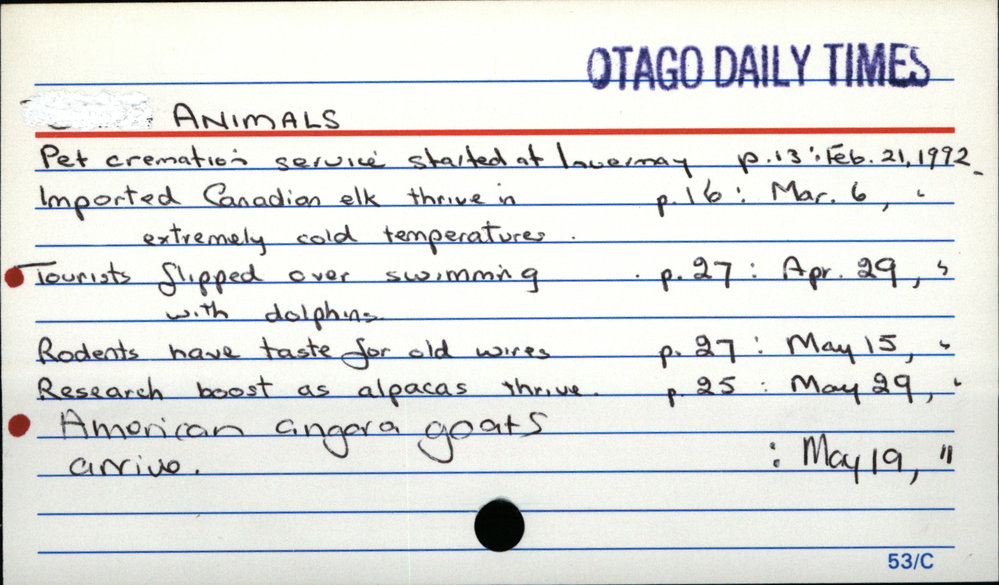 OTAGO DAILY TIMES
ANIMALS
Pet cremation service started at Invermay p.13 : Feb. 21, 1992
Imported Canadian elk thrive in p. 16 : Mar. 6, "
extremely cold temperatures .
Tourists flipped over swimming . p. 27 : Apr. 29, "
with dolphins
Rodents have taste for old wires p. 27 : May 15, "
Research boost as alpacas thrive. p. 25 : May 29, "
American angora goats
arrive. : May 19, "
53/C